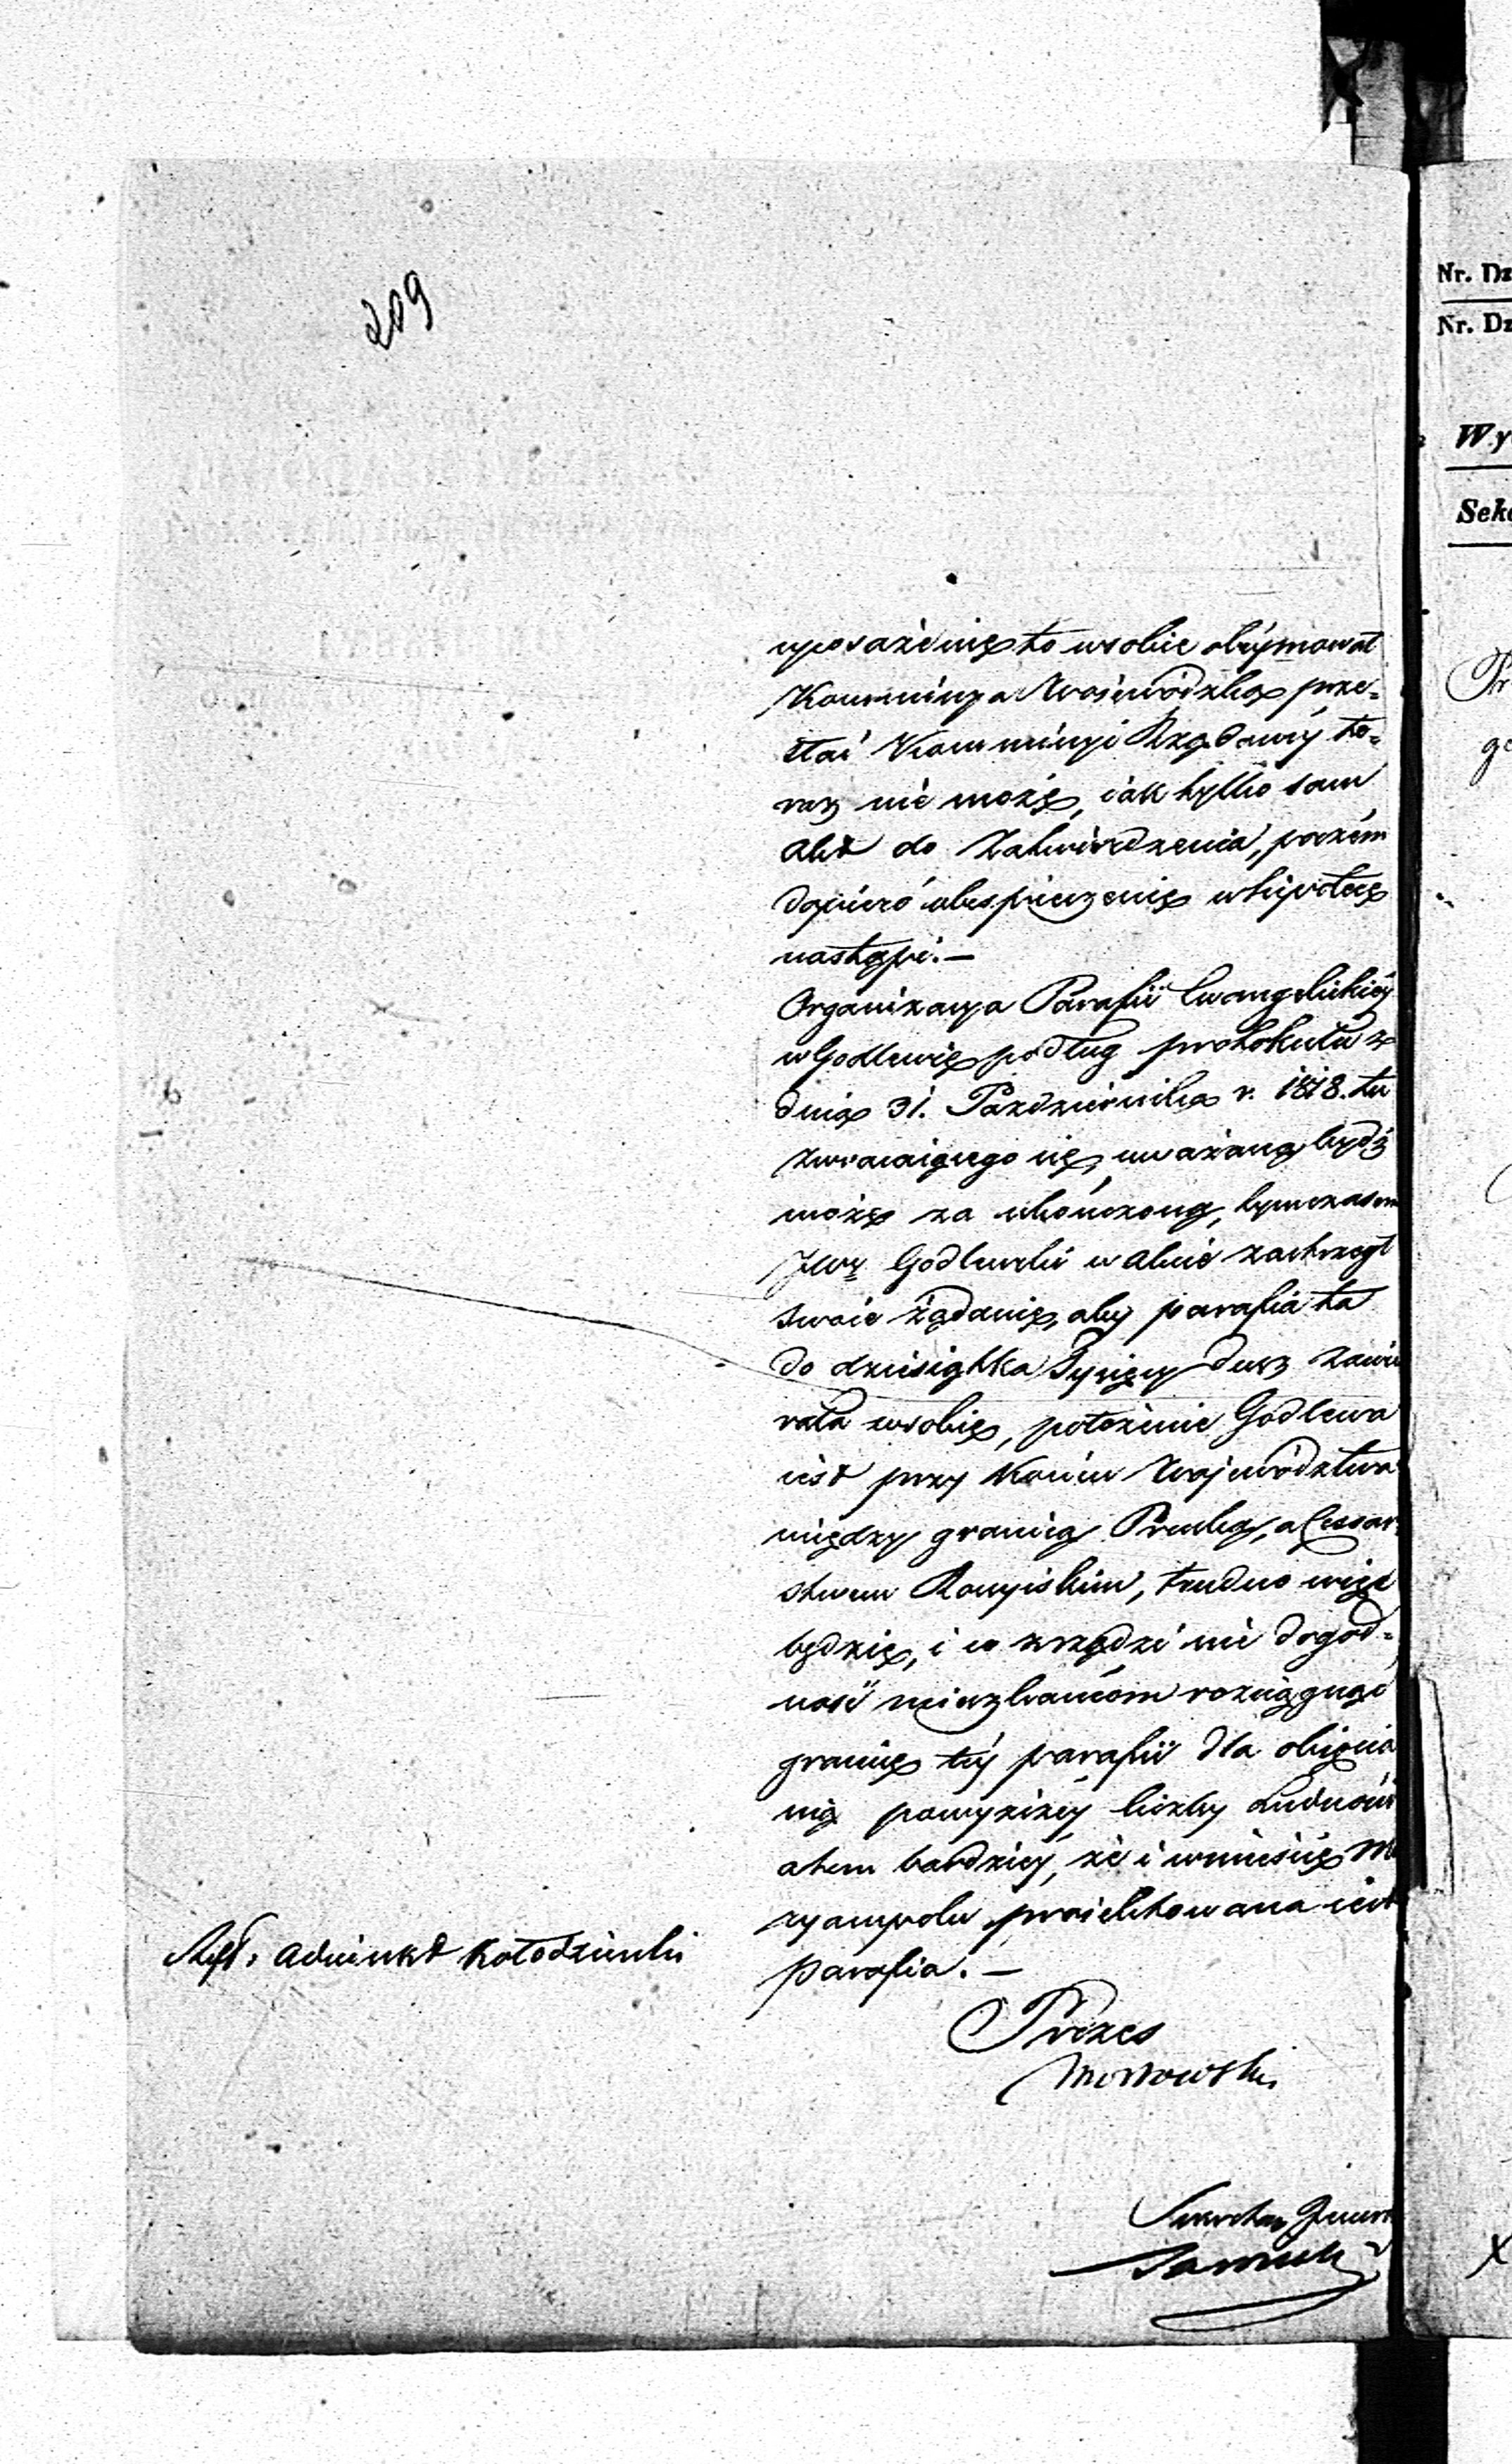 209
uposażenie to w sobie obéymował
Kommissya Woiewódzka prze-
słać Kommissyi Rządowéy te-
raz nie może, iak tylko sam
akt do Zatwierdzenia, poczém
dopiéro ubespieczenie w hipotece
nastąpi. —
Organizacya Parafii Ewangelickiéy
w Godlewie podług protokułu z
dnia 31. Pazdziernika r. 1818. tu
zwracaiącego się, uważaną bydź
może za ukończoną, tymczasem
JWy Godlewski w akcie zastrzegł
swoie żądanie, aby parafia ta
do dziesiątka Tysięcy dusz zawie
rała w sobie, położenie Godlewa
iest przy końcu Woiewództwa
między granicą Pruską, a Cesar
stwem Rossyiskim, trudno więc
będzie, i co wszędzie nie dogod-
ność mieszkańcom rozciągnąć
granice téy parafii dla obięcia
nią powyższéy liczby Ludności
a tem bardziéy, że i w mieście M
ryampolu proiektowana iest
parafia. —
Ref: Adiunkt Kołodzinski
Prezes
Sekretarz Gener